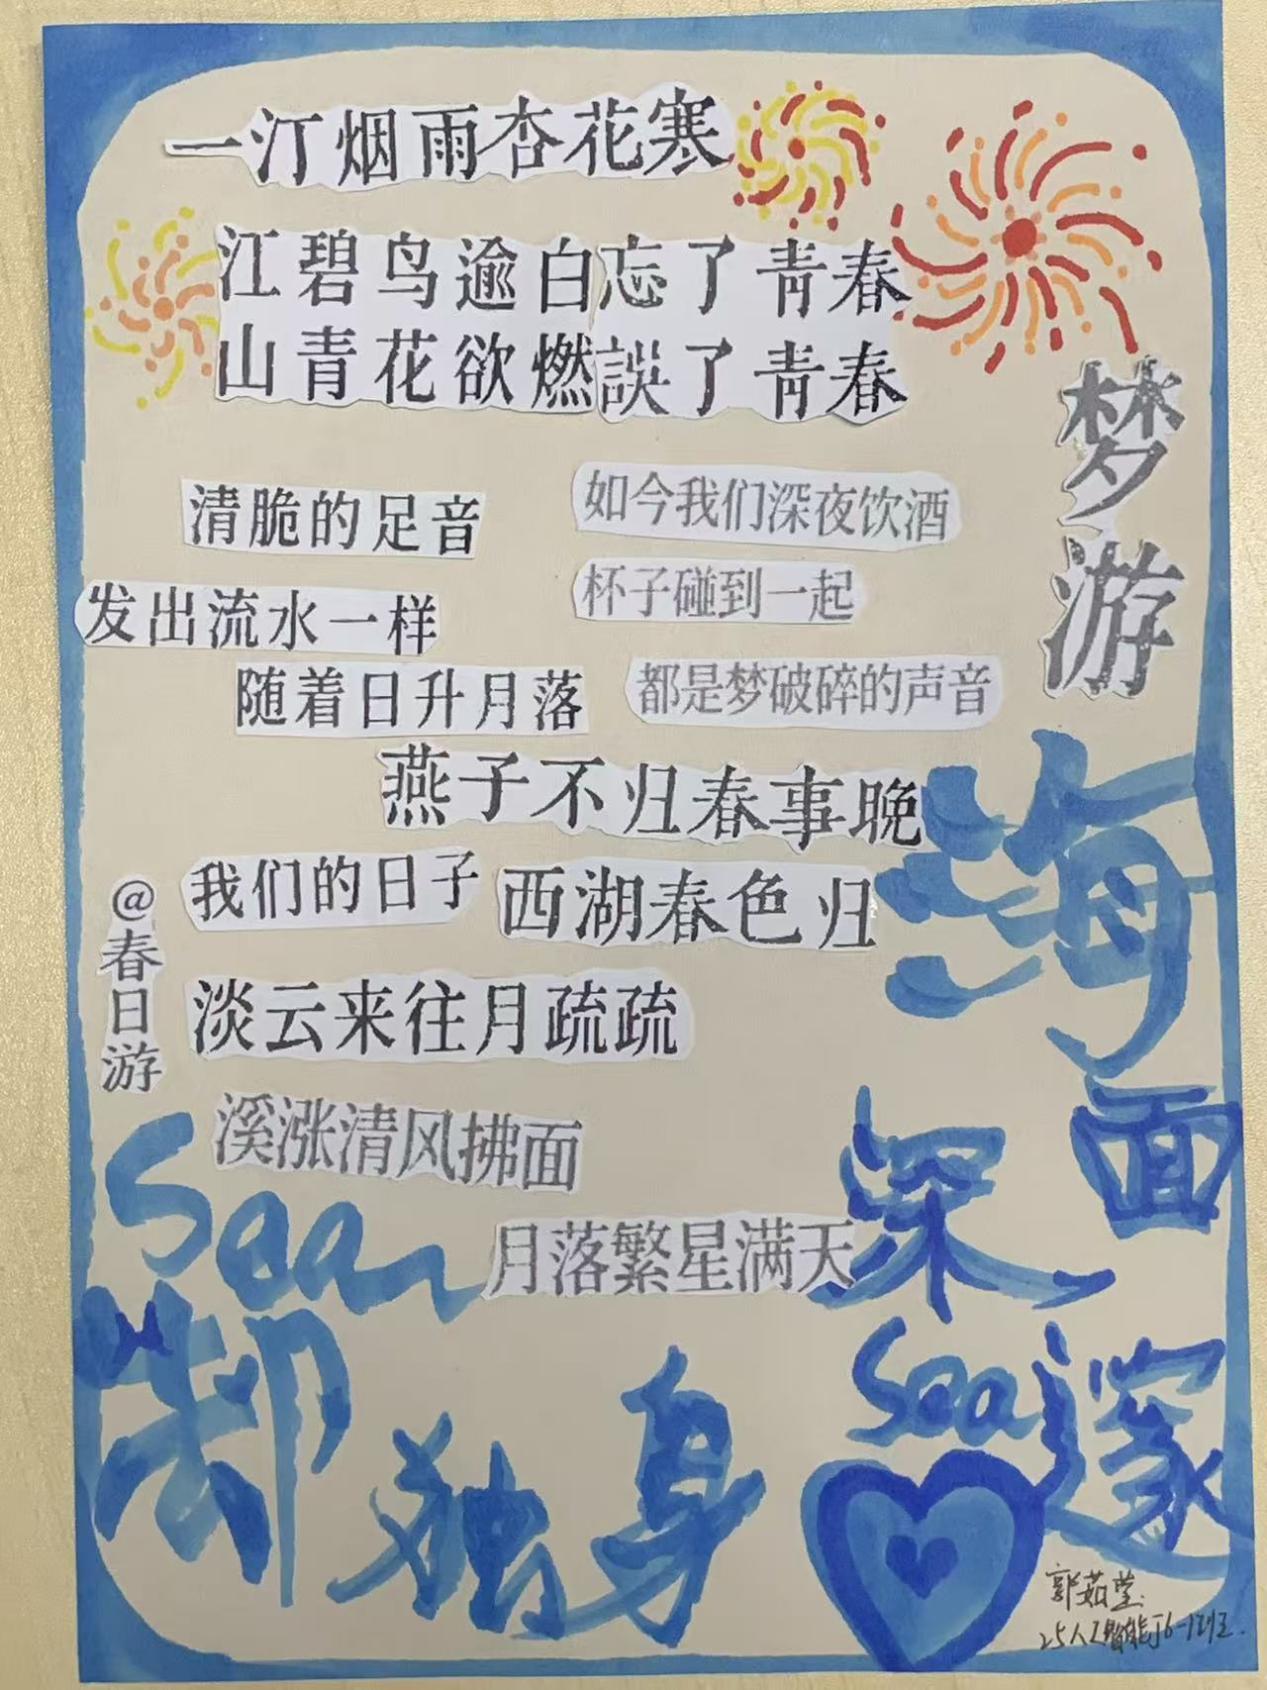 一汀烟雨杏花寒
江碧鸟逾白忘了青春
山青花欲燃誤了青春
梦游
清脆的足音
如今我们深夜饮酒
发出流水一样
杯子碰到一起
随着日升月落
都是梦破碎的声音
燕子不归春事晚
我们的日子
西湖春色归
@春日游
淡云来往月疏疏
溪涨清风拂面
月落繁星满天
海面
深邃
Sea
Sea
却独身
郭茹莹